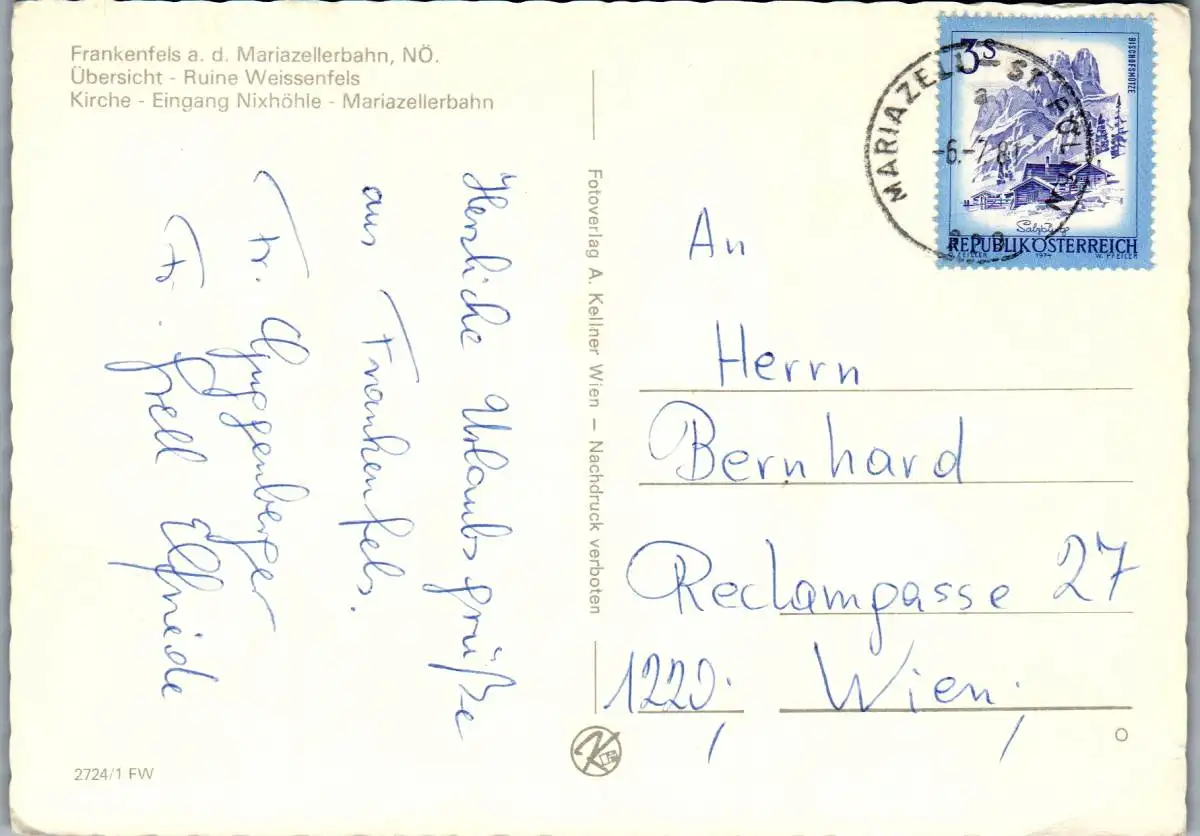 Frankenfels a. d. Mariazellerbahn, NÖ.
Übersicht - Ruine Weissenfels
Kirche - Eingang Nixhöhle - Mariazellerbahn
Herzliche Urlaubsgrüße
aus Frankenfels.
Fr. Guggenberger
Fr. Grell Elfriede
2724/1 FW
Fotoverlag A. Kellner Wien – Nachdruck verboten
3S
BISCHOFSMÜTZE
Salzburg
REPUBLIK ÖSTERREICH
1974 W. PFEILER
MARIAZELL - ST. PÖLTEN
a
-6.-7.81
An
Herrn
Bernhard
Reclamgasse 27
1220, Wien,